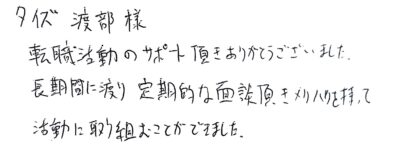 タイズ 渡部 様
転職活動のサポート頂きありがとうございました。
長期間に渡り定期的な面談頂きメリハリを持って
活動に取り組むことができました。